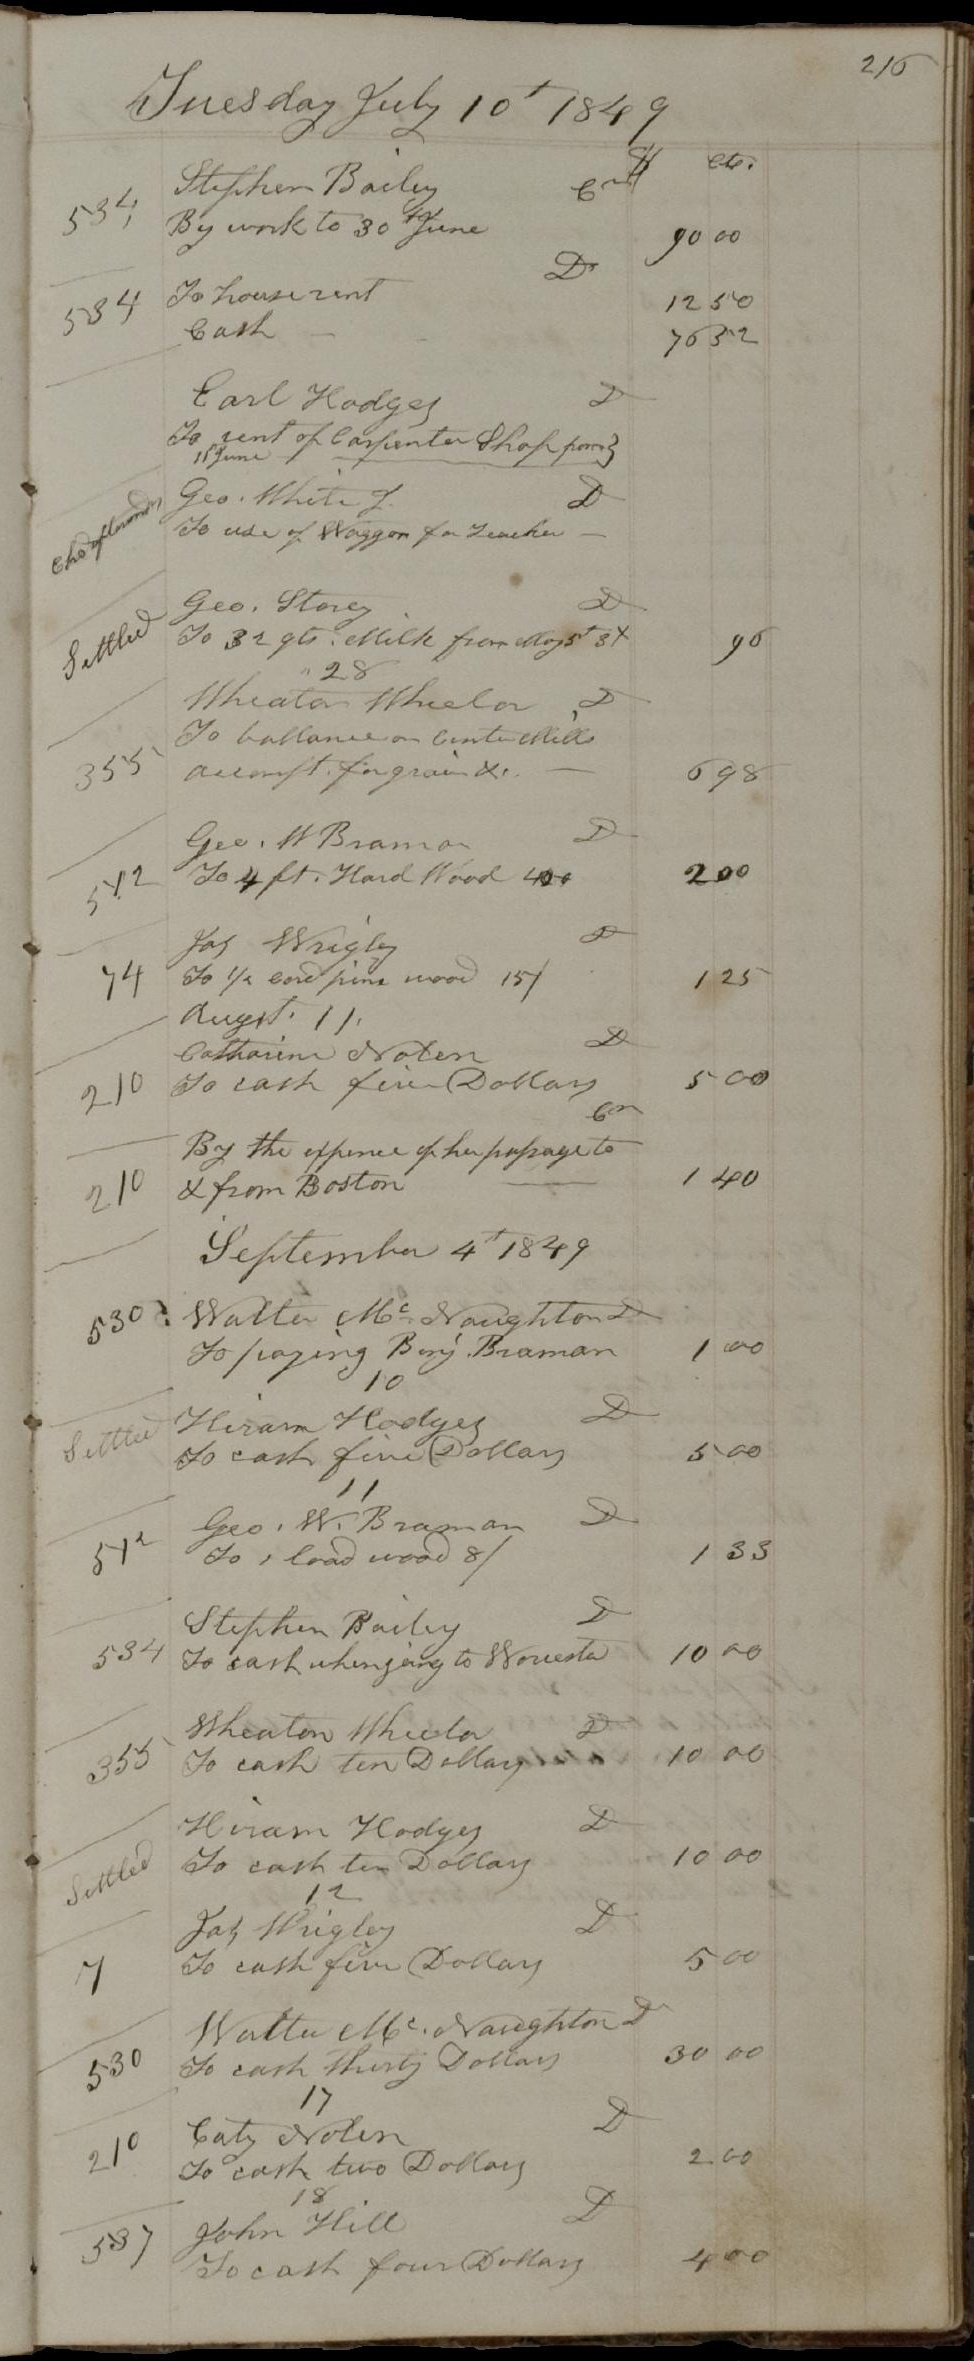 216
Tuesday July 10t 1849
$ cts.
Stephen Bailey Cr
534 By work to 30th June 90 00
Dr
534 To house rent 12 50
Cash 76 32
Earl Hodges D
To rent of Carpenter Shop from
15 June
Geo. White Jr. D
To use of Waggon for Teacher
Geo. Storey D
Settled To 32 qts. Milk from May 5t 3x 96
" 28
Wheaton Wheelor D
To ballance on Center Mill
355 accompt. for grain &c. 6 98
Geo. W Braman D
512 To 4 ft. Hard Wood 400 2 00
Jas Wrigley D
74 To 1/2 cord pine wood 15/ 1 25
Augst. 11.
Catharine Nolen D
210 To cash five Dollars 5 00
Cr
By the expence of her passage to
210 & from Boston 1 40
September 4t 1849
530 Walter Mc. Naughton D
To paying Benj. Braman 1 00
10
Hiram Hodges D
Settled To cash five Dollars 5 00
11
Geo. W. Braman D
512 To 1 load wood 8/ 1 33
Stephen Bailey D
534 To cash when going to Worcester 10 00
Wheaton Wheelor D
355 To cash ten Dollars 10 00
Hiram Hodges D
Settled To cash ten Dollars 10 00
12
Jas Wrigley D
7 To cash five Dollars 5 00
Walter Mc. Naughton D
530 To cash thirty Dollars 30 00
17
Caty Nolen D
210 To cash two Dollars 2 00
18
John Hill D
537 To cash four Dollars 4 00